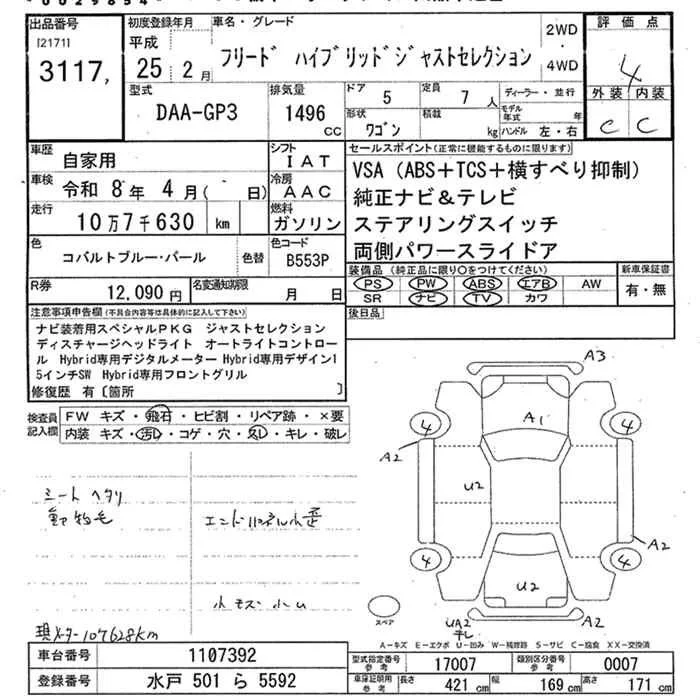 出品番号
[2171]
3117,
初度登録年月
平成
25年 2月
車名・グレード
フリード ハイブリッドジャストセレクション
2WD
・
4WD
評価点
4
外装 内装
C C
型式
DAA-GP3
排気量
1496
cc
ドア
5
定員
7 人
形状
ワゴン
積載
kg
ディーラー・並行
モデル年式
年
ハンドル 左・右
車歴
自家用
シフト
IAT
車検
令和 8年 4月( 日)
冷房
AAC
走行
10万7千630 km
燃料
ガソリン
色
コバルトブルー・パール
色替
色コード
B553P
R券
12,090円
名変通知期限
月 日
セールスポイント(正常に機能するものに限ります)
VSA(ABS+TCS+横すべり抑制)
純正ナビ&テレビ
ステアリングスイッチ
両側パワースライドア
装備品(純正品に限り○をつけてください)
PS PW ABS エアB AW
SR ナビ TV カワ
新車保証書
有・無
後日品
注意事項申告欄(不具合内容等は具体的に記入して下さい)
ナビ装着用スペシャルPKG ジャストセレクション
ディスチャージヘッドライト オートライトコントロー
ル Hybrid専用デジタルメーター Hybrid専用デザイン1
5インチSW Hybrid専用フロントグリル
修復歴 有〔箇所 〕
検査員記入欄
FW キズ・飛石・ヒビ割・リペア跡・×要
内装 キズ・汚レ・コゲ・穴・スレ・キレ・破レ
シートヘタリ
動物毛
エンドパネル小歪
現メーター107628km
A3
A1
4
4
A2
U2
A2
4
4
U2
UA2
A2
スペア
A-キズ E-エクボ U-凹み W-補修跡 S-サビ C-腐食 XX-交換済
車台番号
1107392
登録番号
水戸 501 ら 5592
型式指定番号
参考
17007
類別区分番号
参考
0007
車庫証明用
参考
長さ
421 cm
幅
169 cm
高さ
171 cm